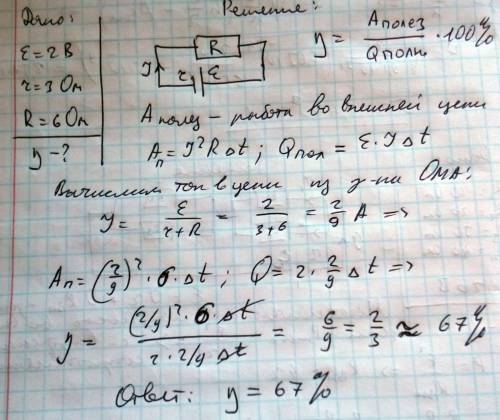 Дано:
ε = 2 В
r = 3 Ом
R = 6 Ом
η - ?
Решение:
R
I r ε
η = Aполез / Qполн · 100%
A полез – работа во внешней цепи
Aп = I²RΔt ; Qпол = ε·IΔt
Вычислим ток в цепи из з-на Ома:
I = ε / (r+R) = 2 / (3+6) = 2/9 A =>
Aп = (2/9)² · 6 · Δt ; Q = 2 · 2/9 Δt =>
η = (2/9)² · 6 Δt / (2 · 2/9 Δt) = 6/9 = 2/3 ≈ 67%
Ответ: η = 67%